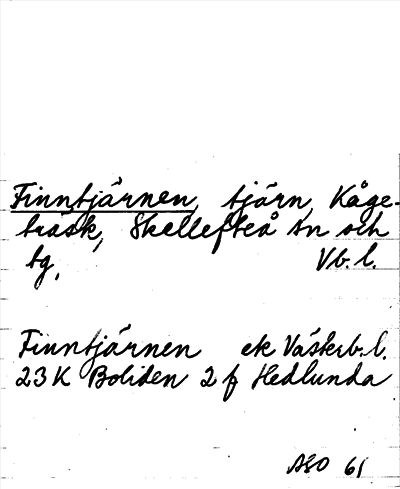 Finntjärnen, tjärn, Kåge-
träsk, Skellefteå sn och
tg, Vb. l.
Finntjärnen ek Västerb. l.
23 K Boliden 2 f Hedlunda
ASO 61